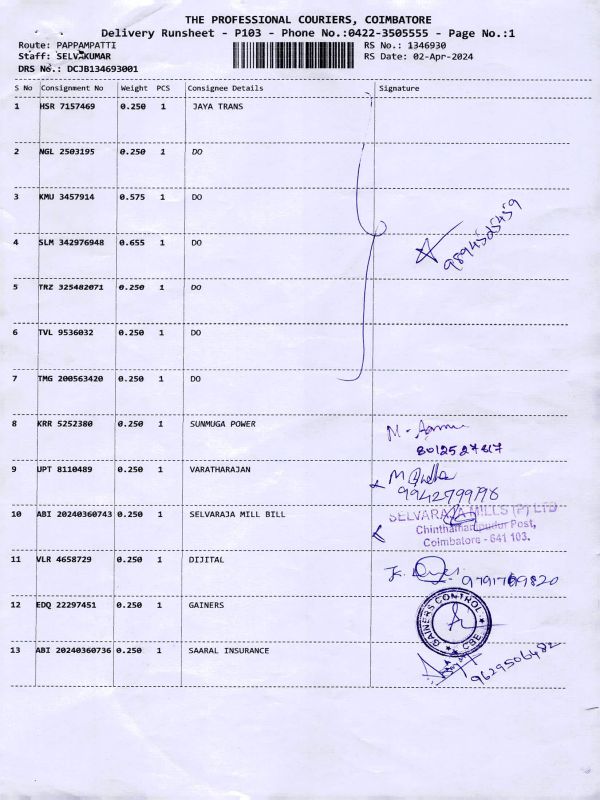 THE PROFESSIONAL COURIERS, COIMBATORE
Delivery Runsheet - P103 - Phone No.:0422-3505555 - Page No.:1
Route: PAPPAMPATTI RS No.: 1346930
Staff: SELVAKUMAR RS Date: 02-Apr-2024
DRS No.: DCJB134693001
S No Consignment No Weight PCS Consignee Details Signature
1 HSR 7157469 0.250 1 JAYA TRANS
2 NGL 2503195 0.250 1 DO
3 KMU 3457914 0.575 1 DO
4 SLM 342976948 0.655 1 DO
9894505459
5 TRZ 325482071 0.250 1 DO
6 TVL 9536032 0.250 1 DO
7 TMG 200563420 0.250 1 DO
8 KRR 5252380 0.250 1 SUNMUGA POWER
9 UPT 8110489 0.250 1 VARATHARAJAN
10 ABI 20240360743 0.250 1 SELVARAJA MILL BILL SELVARAJA MILLS (P) LTD
Chinthamanipudur Post,
Coimbatore - 641 103.
11 VLR 4658729 0.250 1 DIJITAL
12 EDQ 22297451 0.250 1 GAINERS GAINERS CONTROL CBE
13 ABI 20240360736 0.250 1 SAARAL INSURANCE
9629506482